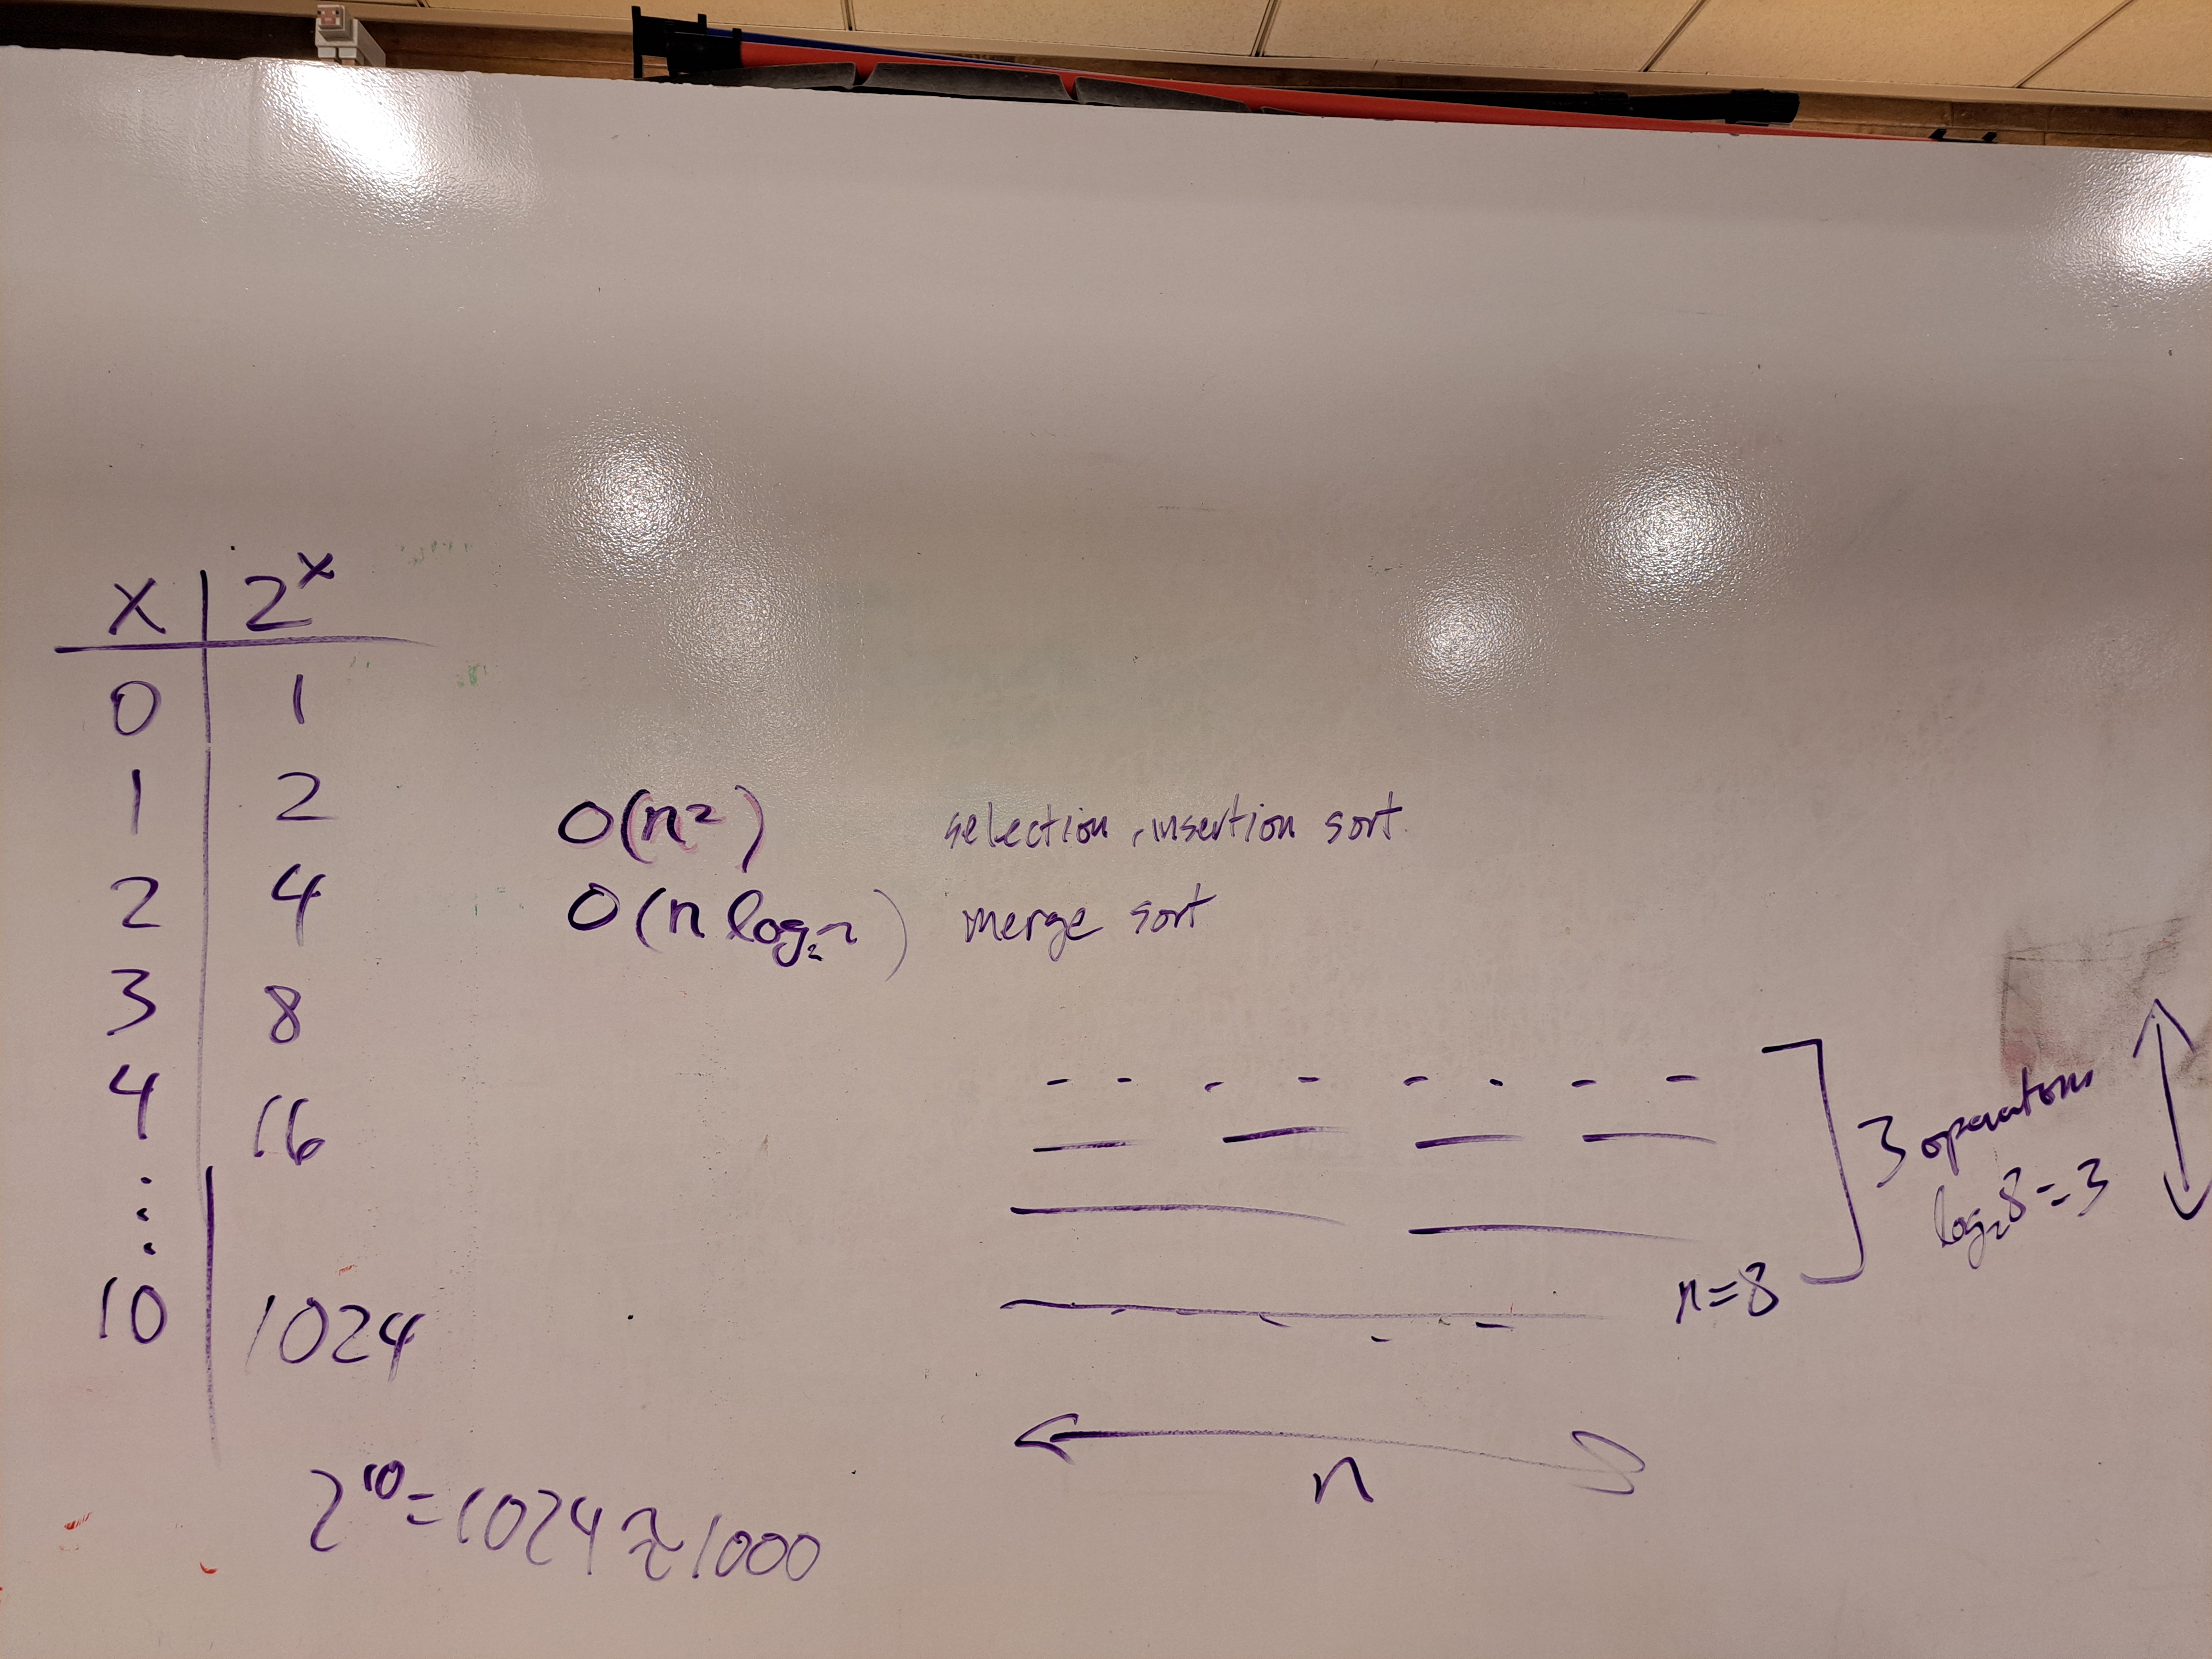 x | 2^x
0 | 1
1 | 2
2 | 4
3 | 8
4 | 16
⋮
10 | 1024
2^10 = 1024 ≈ 1000
O(n²) selection, insertion sort
O(n log₂ n) merge sort
3 operations
log₂8 = 3
n=8
n